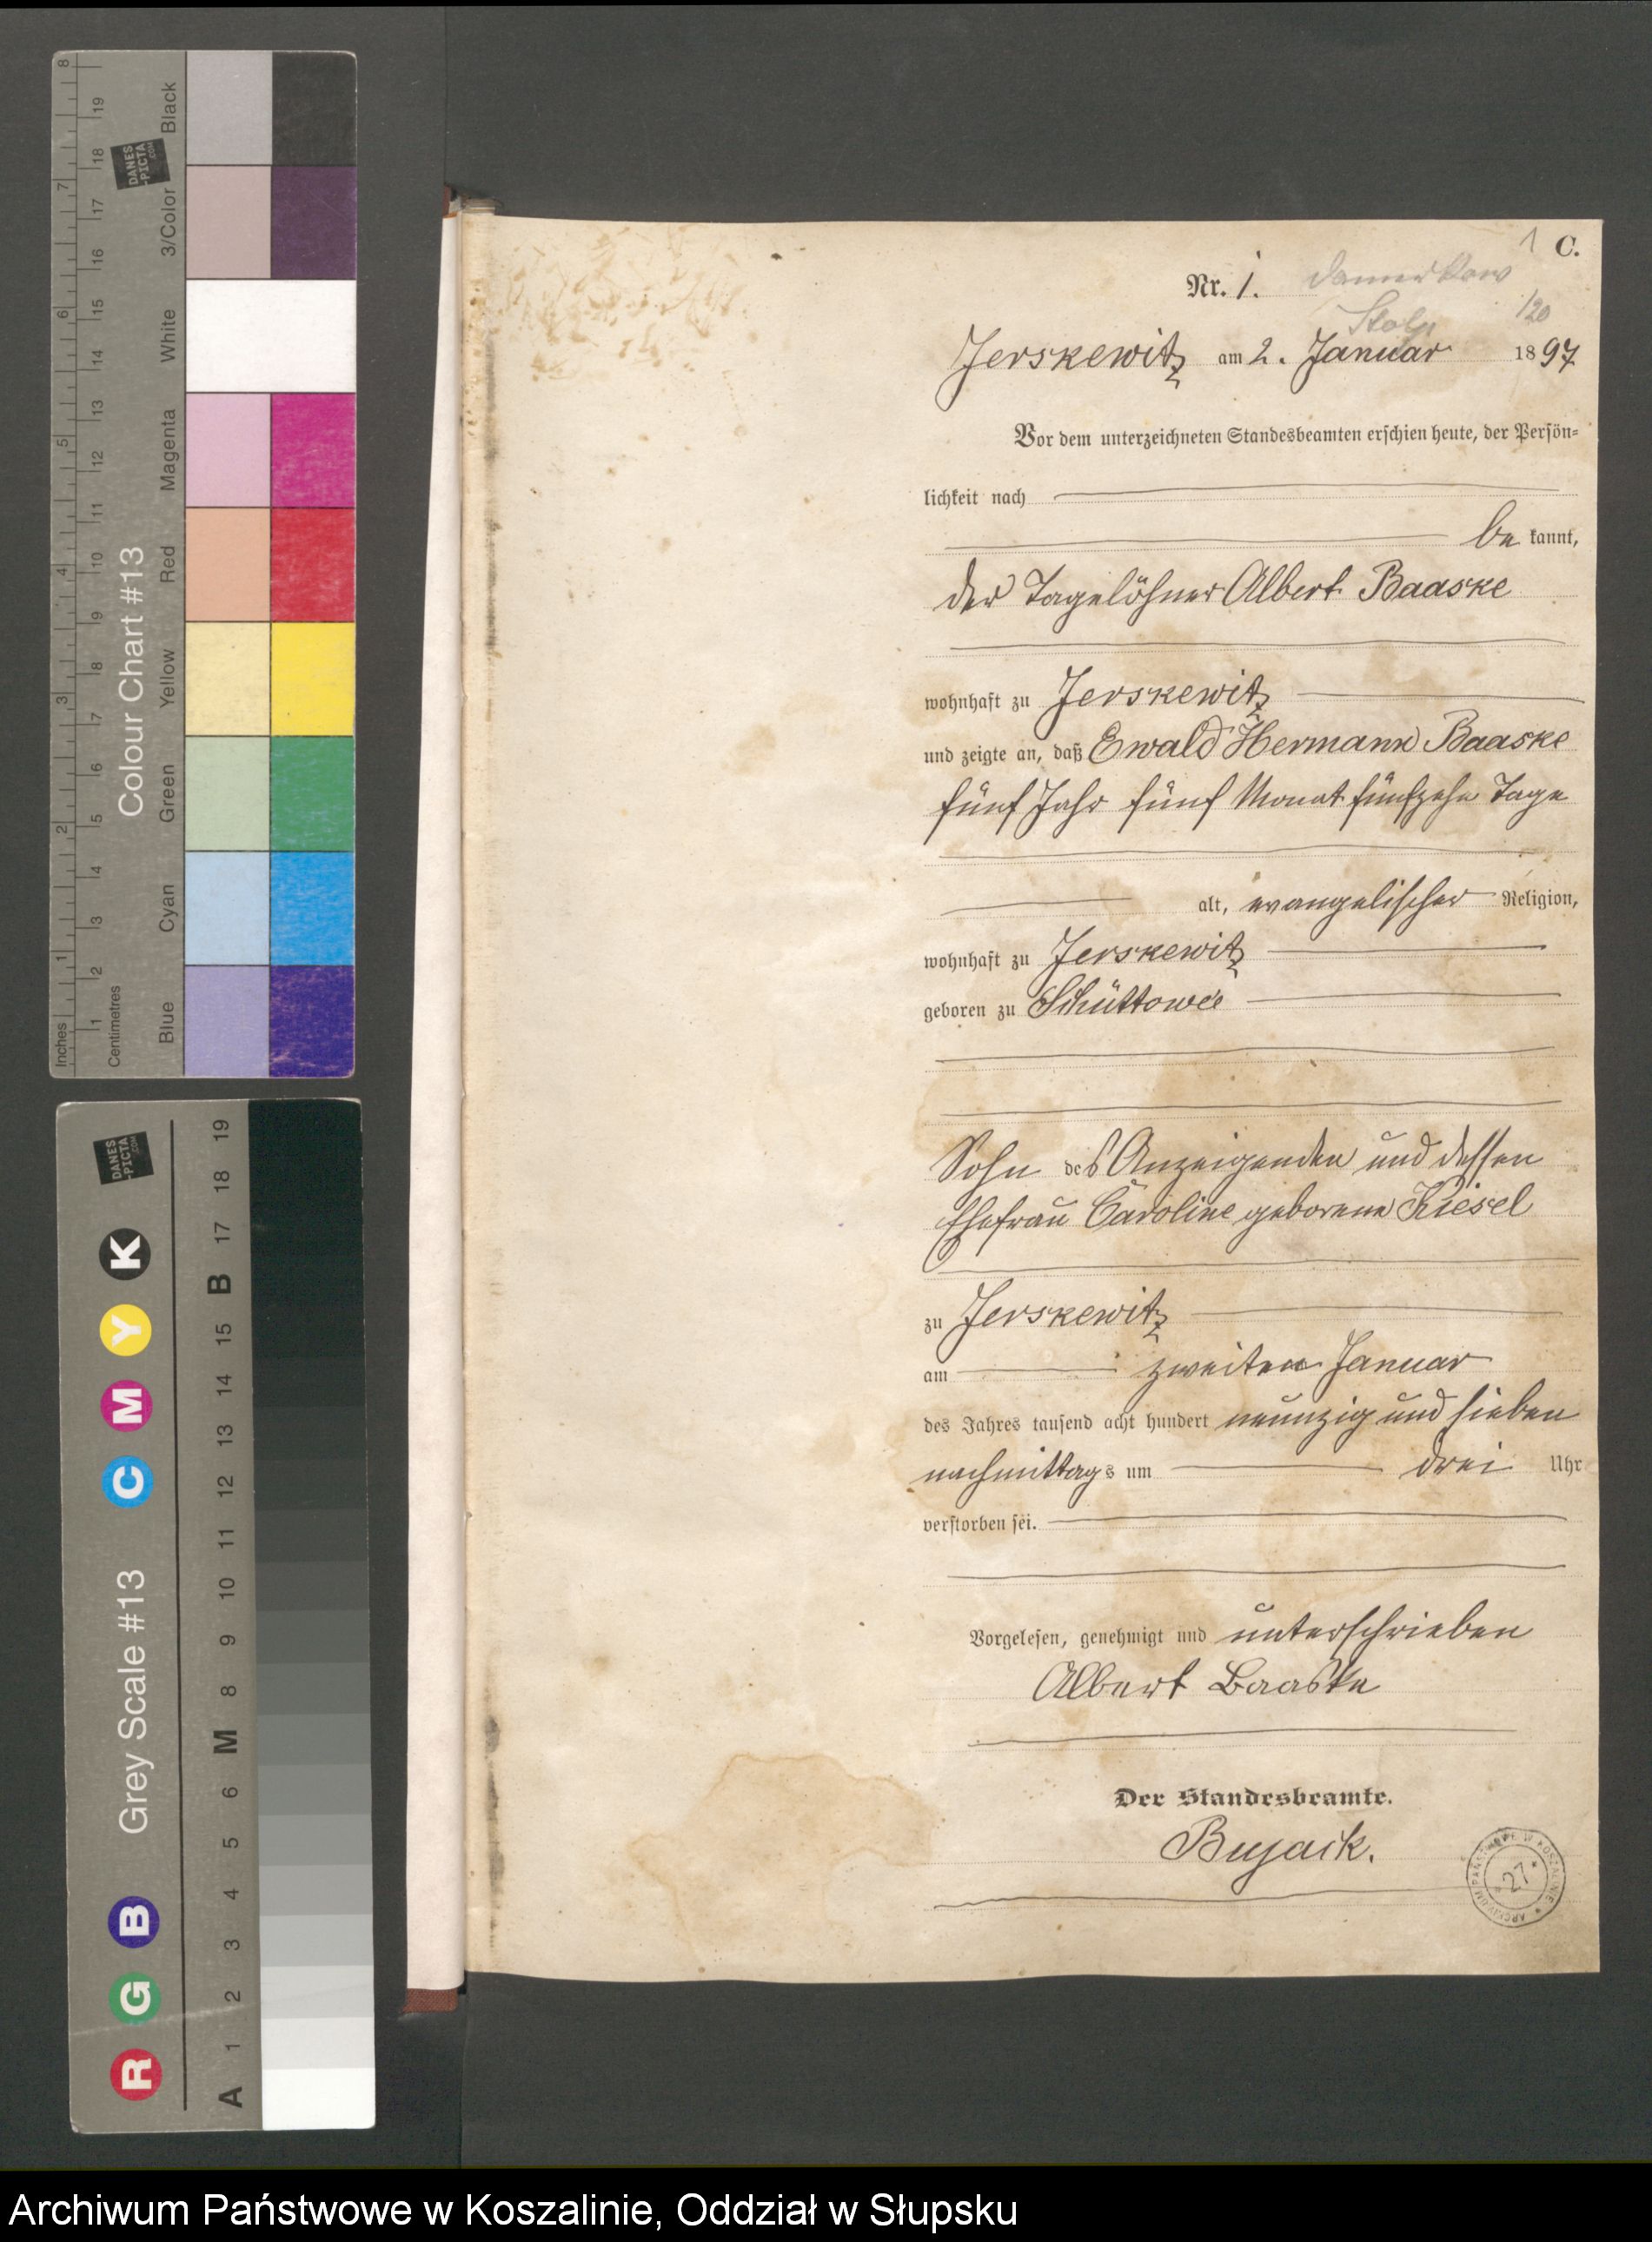 C.
1
Nr. 1. Damerkow
Stolp 120
Jerskewitz am 2. Januar 1897
Vor dem unterzeichneten Standesbeamten erschien heute, der Persön=
lichkeit nach
be kannt,
der Tagelöhner Albert Baaske
wohnhaft zu Jerskewitz
und zeigte an, daß Ewald Hermann Baaske
fünf Jahr fünf Monat fünfzehn Tage
alt, evangelischer Religion,
wohnhaft zu Jerskewitz
geboren zu Schüttow
Sohn des Anzeigenden und dessen
Ehefrau Caroline geborene Kiesel
zu Jerskewitz
am zweiten Januar
des Jahres tausend acht hundert neunzig und sieben
nachmittags um drei Uhr
verstorben sei.
Vorgelesen, genehmigt und unterschrieben
Albert Baaske
Der Standesbeamte.
Bujack.
ARCHIWUM PAŃSTWOWE W KOSZALINIE
* 27 *
Colour Chart #13
Black
3/Color
White
Magenta
Red
Yellow
Green
Cyan
Blue
Inches 1 2 3 4 5 6 7 8
Centimetres 1 2 3 4 5 6 7 8 9 10 11 12 13 14 15 16 17 18 19
DANES
-PICTA
.COM
Grey Scale #13
R G B C M Y K
A 1 2 3 4 5 6 M 8 9 10 11 12 13 14 15 B 17 18 19
DANES
-PICTA
.COM
Archiwum Państwowe w Koszalinie, Oddział w Słupsku